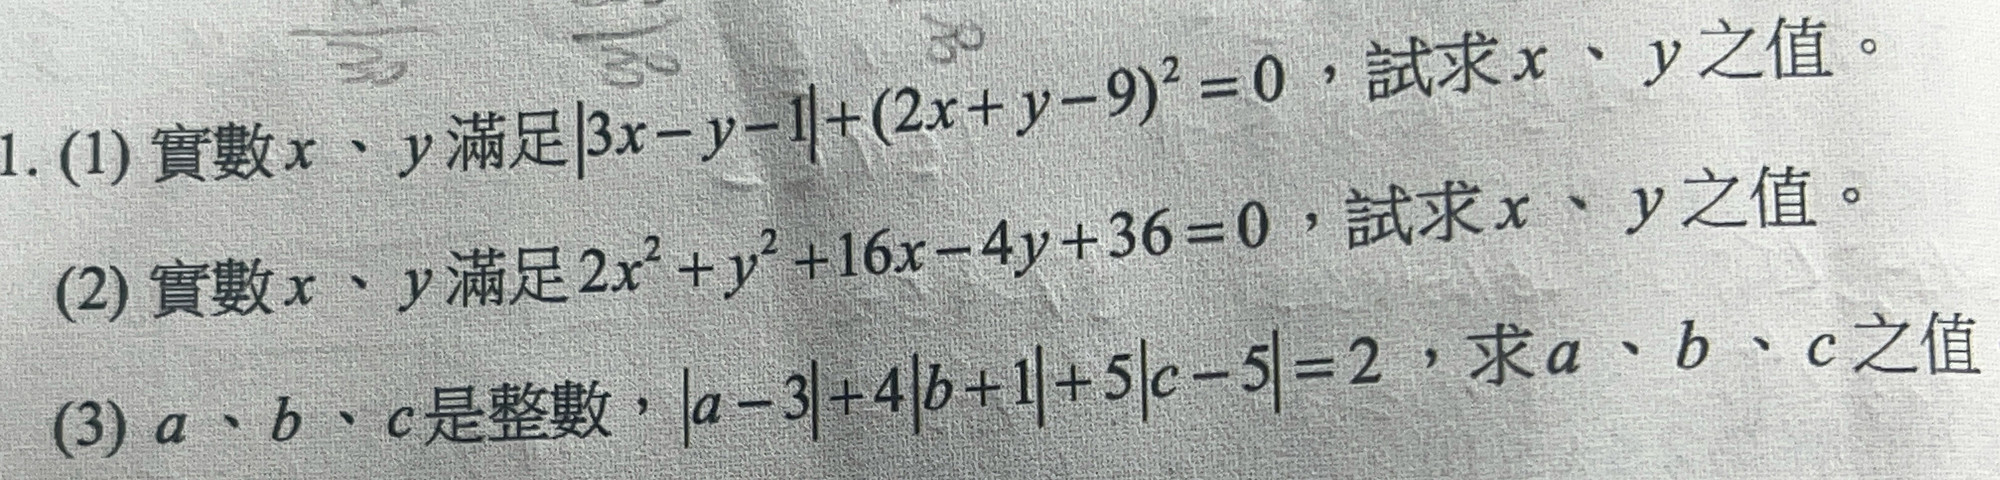 1. (1) 實數x、y滿足|3x-y-1|+(2x+y-9)²=0，試求x、y之值。
(2) 實數x、y滿足2x²+y²+16x-4y+36=0，試求x、y之值。
(3) a、b、c是整數，|a-3|+4|b+1|+5|c-5|=2，求a、b、c之值